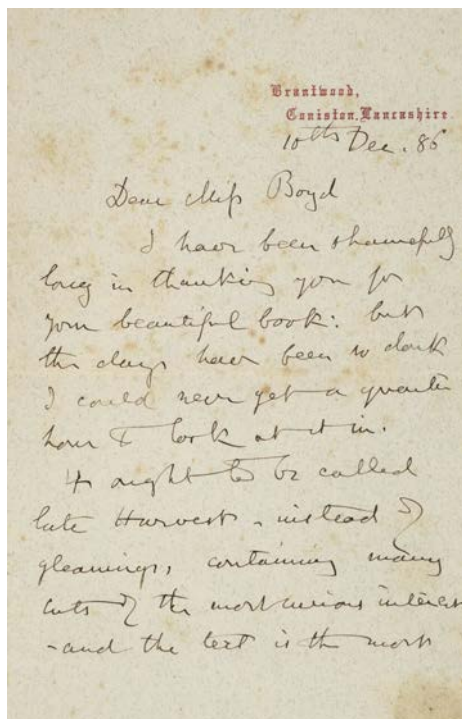 Brantwood,
Coniston, Lancashire.
10th Dec. 86
Dear Miss Boyd
I have been shamefully
long in thanking you for
your beautiful book: but
the days have been so dark
I could never get a quarter
hour to look at it in.
It ought to be called
late Harvest - instead of
gleanings, containing many
cuts of the most curious interest
- and the text is the most